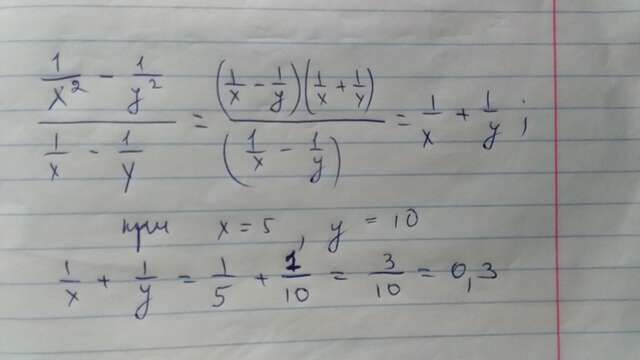 (1/x² - 1/y²)/(1/x - 1/y) = ((1/x - 1/y)(1/x + 1/y))/((1/x - 1/y)) = 1/x + 1/y ;
при x = 5, y = 10
1/x + 1/y = 1/5 + 1/10 = 3/10 = 0,3